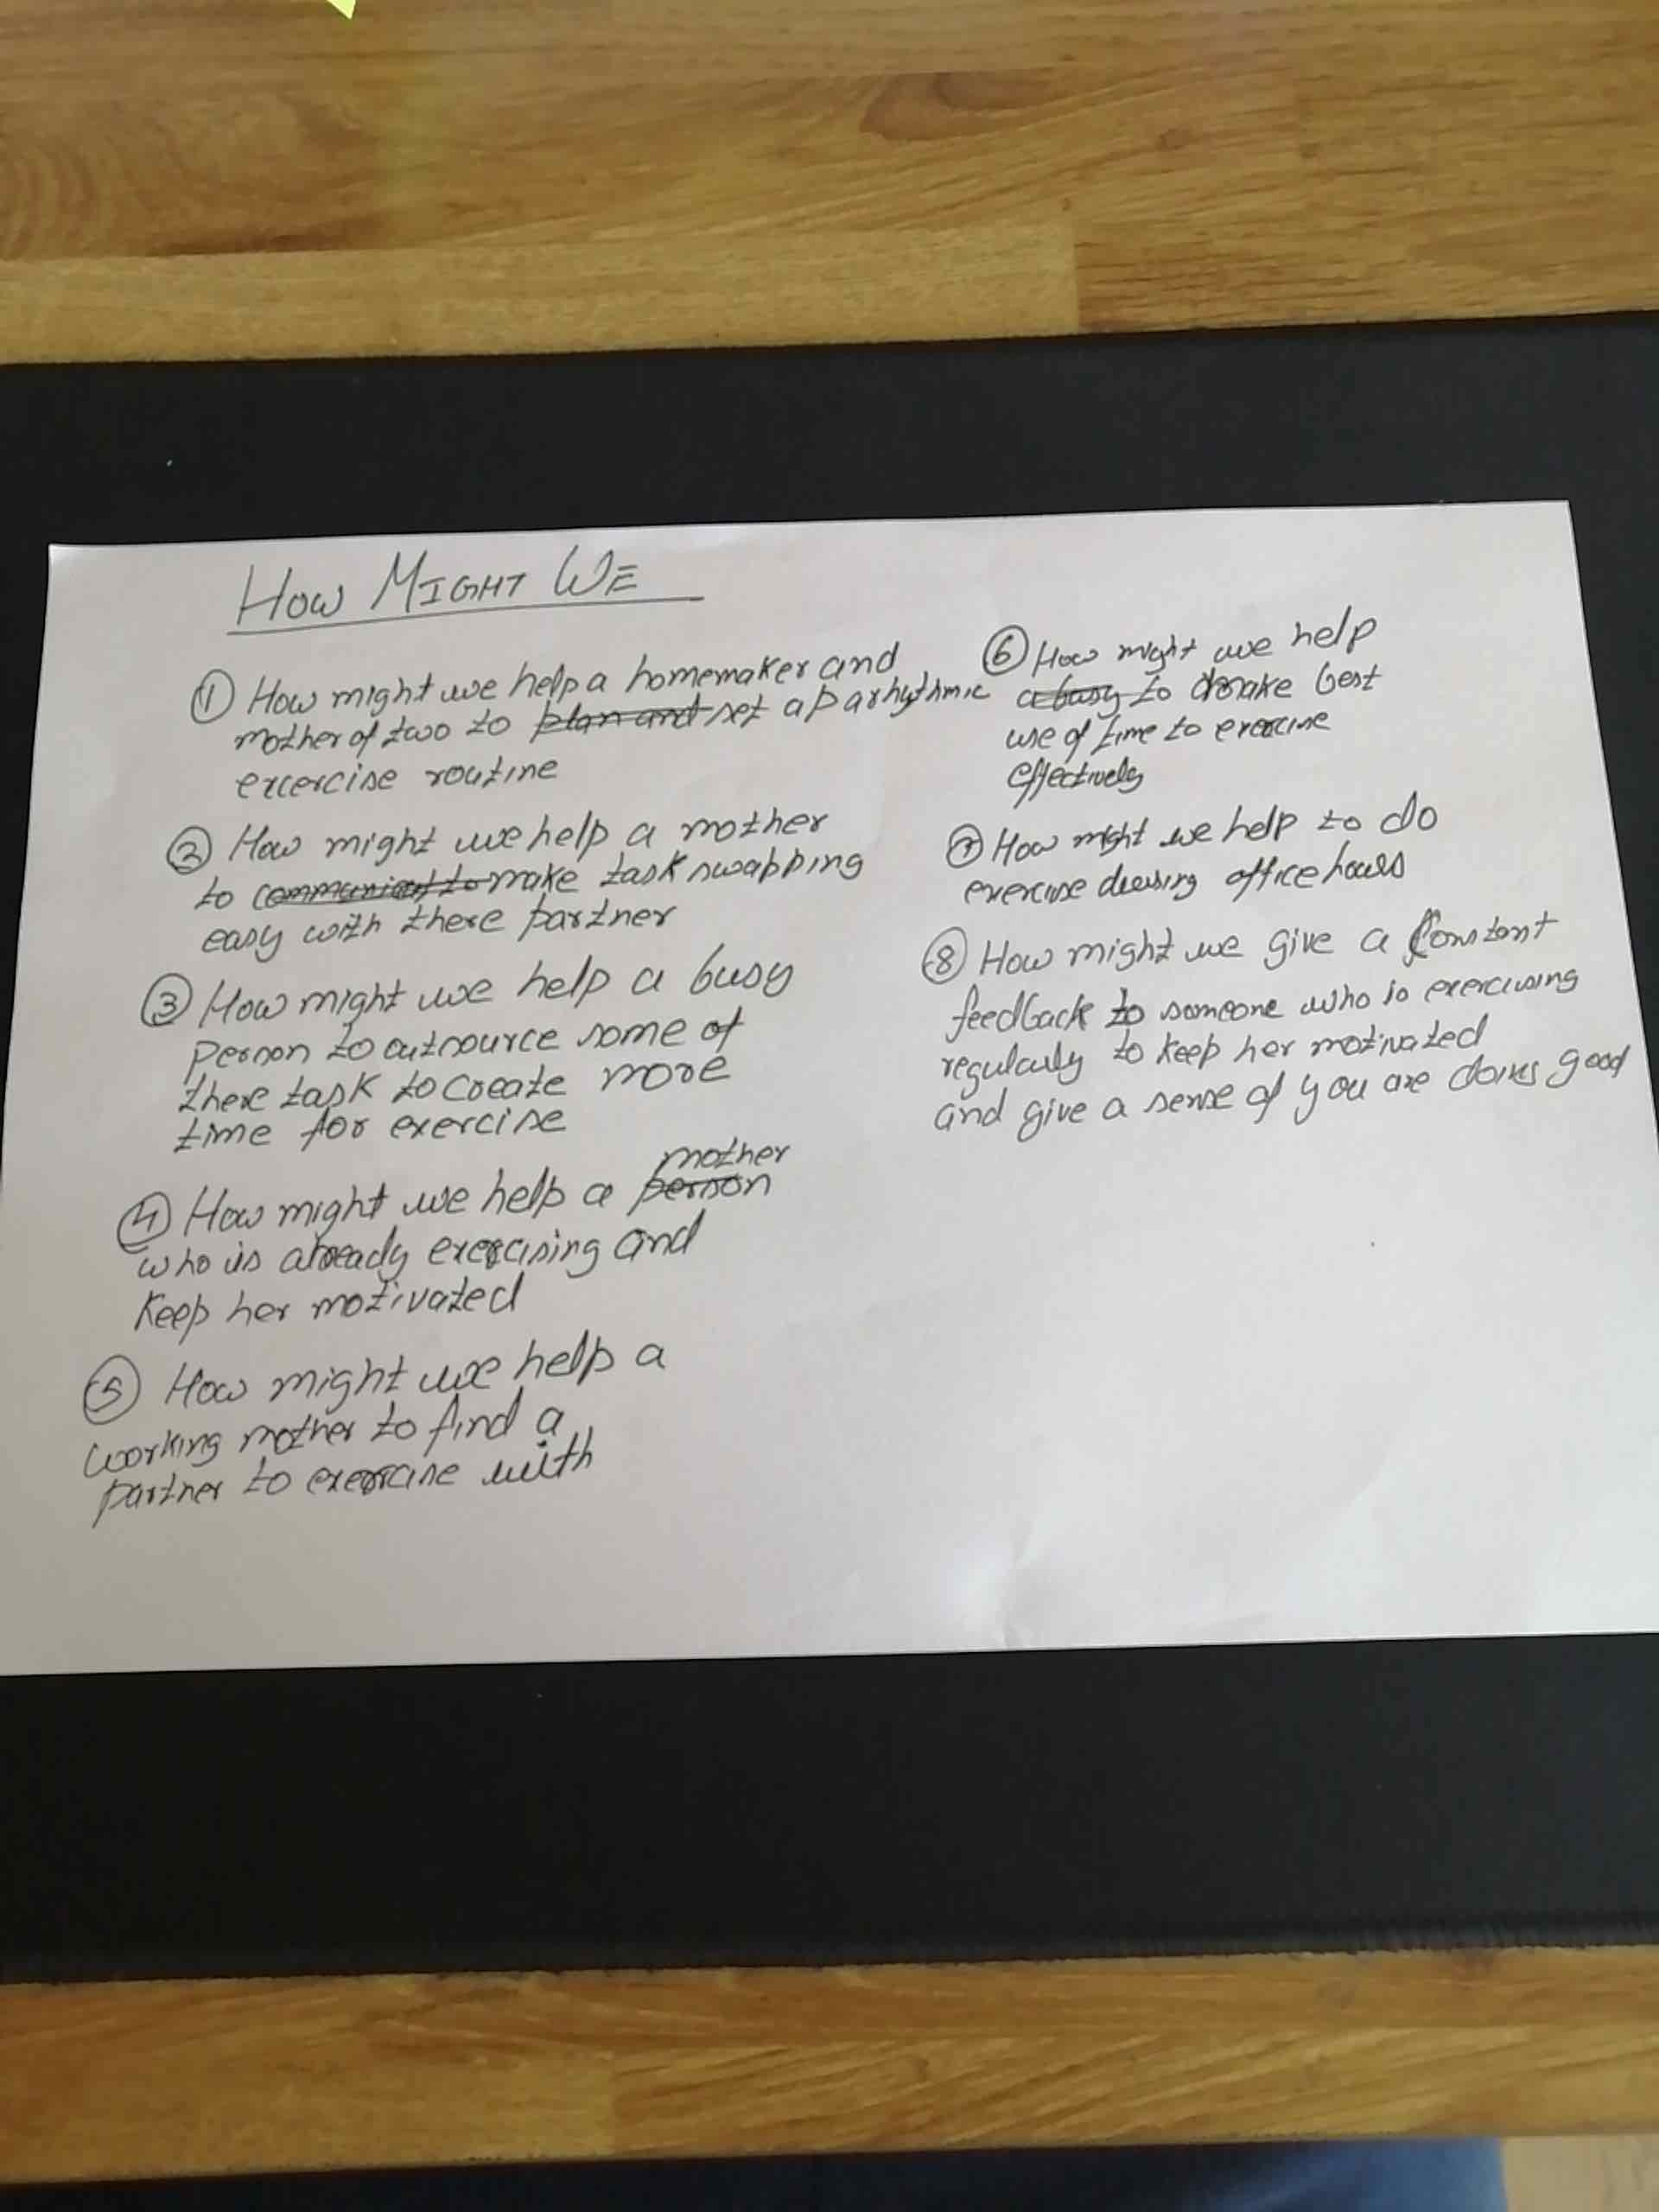 HOW MIGHT WE
① How might we help a homemaker and
mother of two to plan and set a parhythmic
excercise routine
② How might we help a mother
to communicat to make task swapping
easy with there partner
③ How might we help a busy
person to outsource some of
there task to create more
time for exercise
mother
④ How might we help a person
who is already exercising and
keep her motivated
⑤ How might we help a
working mother to find a
partner to exercise with
⑥ How might we help
a busy to make best
use of time to exercise
effectively
⑦ How might we help to do
exercise during office hours
⑧ How might we give a constant
feedback to someone who is exercising
regularly to keep her motivated
and give a sense of you are doing good